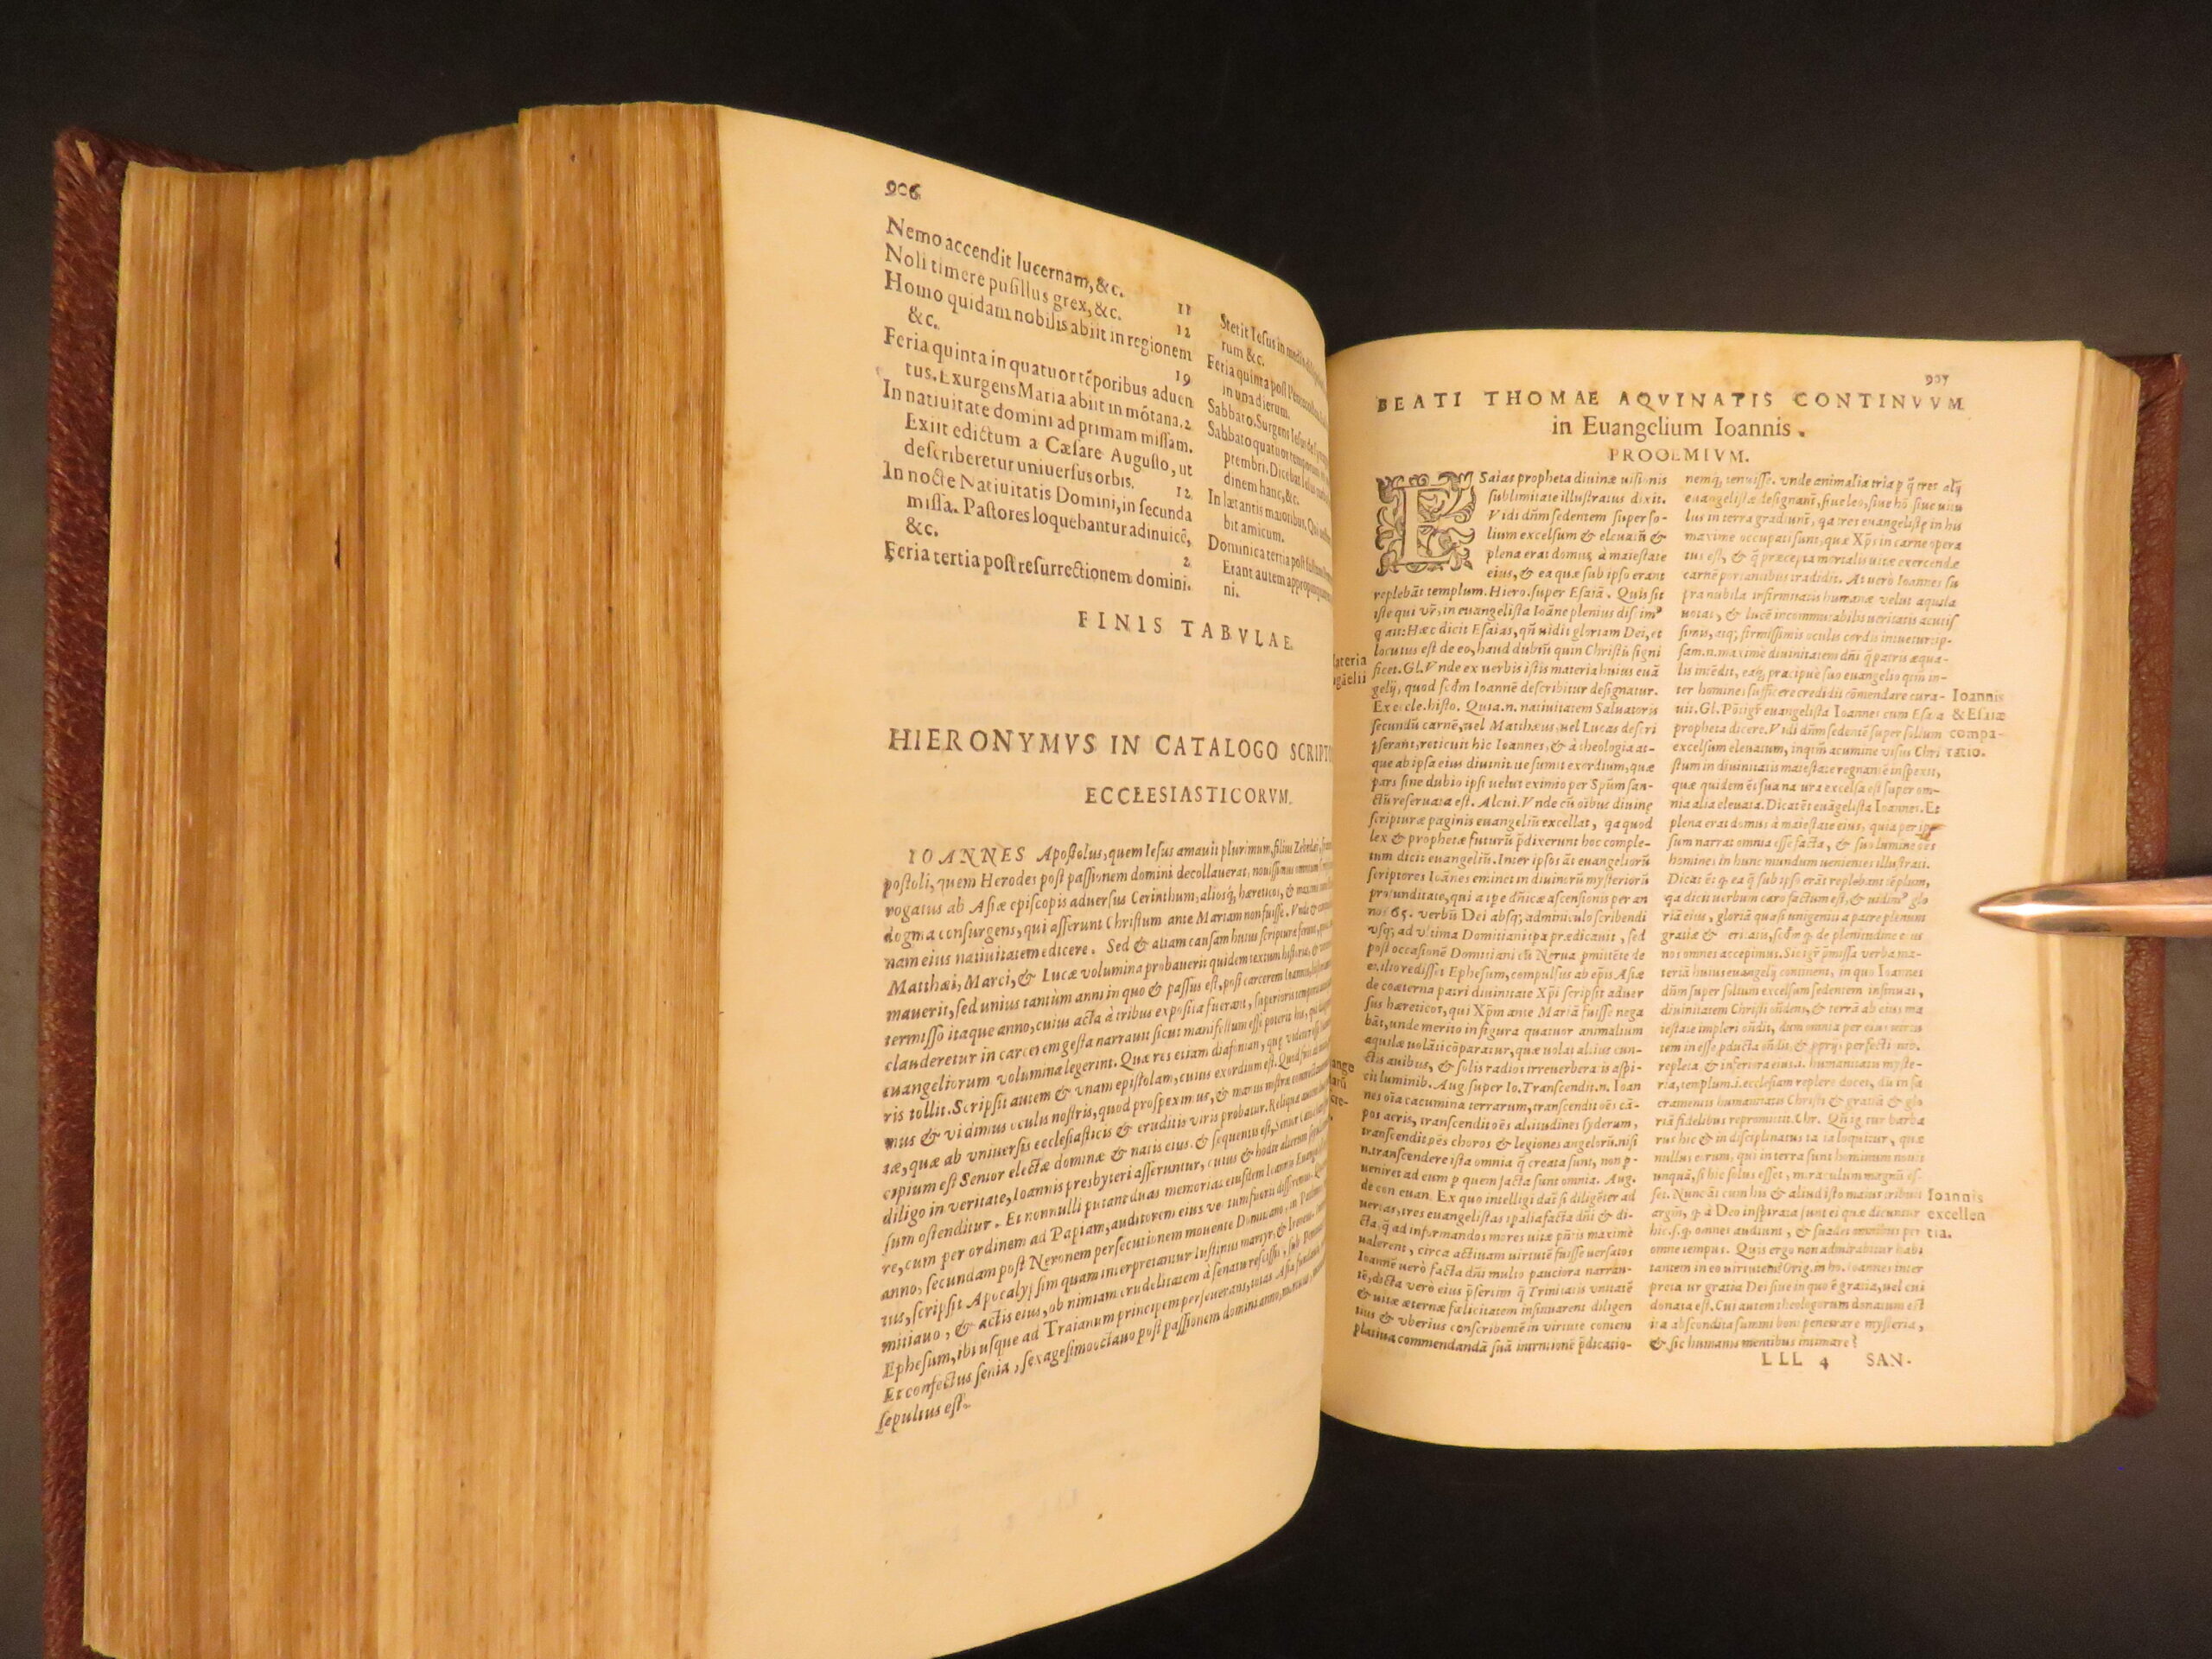 906
Nemo accendit lucernam, &c. 11
Noli timere pusillus grex, &c. 12
Homo quidam nobilis abiit in regionem
&c. 19
Feria quinta in quatuor tēporibus aduen
tus. Exurgens Maria abiit in mōtana. 2
In natiuitate domini ad primam missam.
Exiit edictum a Cæsare Augusto, ut
describeretur uniuersus orbis. 12
In nocte Natiuitatis Domini, in secunda
missa. Pastores loquebantur adinuicē,
&c. 2
Feria tertia post resurrectionem domini.
Stetit Iesus in
rum &c.
Feria quinta post
in una dierum.
Sabbato. Surgens Iesus de
Sabbato quatuor temporum
ptembri. Dicebat Iesus
dinem hanc, &c.
In lætantis maioribus.
bit amicum.
Dominica tertia post
Erant autem appropinquan
ni.
FINIS TABVLAE.
HIERONYMVS IN CATALOGO SCRIPTO
ECCLESIASTICORVM.
IOANNES Apostolus, quem Iesus amauit plurimum, filius Zebedæi,
postoli, quem Herodes post passionem domini decollauerat, nouissimus omnium
rogatus ab Asiæ episcopis aduersus Cerinthum, aliosq; hæreticos, &
dogma consurgens, qui asserunt Christum ante Mariam non fuisse. Vnde &
nam eius natiuitatem edicere. Sed & aliam causam huius scripturæ ferunt,
Matthæi, Marci, & Lucæ volumina probauerit quidem textum historiæ, &
mauerit, sed unius tantùm anni in quo & passus est, post carcerem Ioannis,
termisso itaque anno, cuius acta à tribus exposita fuerant, superioris temporis
clauderetur in carcerem gesta narrauit sicut manifestum esse poterit his, qui
euangeliorum volumina legerint. Quæ res etiam diafonian, quę videtur
ris tollit. Scripsit autem & vnam epistolam, cuius exordium est. Quod fuit
mus & vidimus oculis nostris, quod prospeximus, & manus nostræ
tæ, quæ ab vniuersis ecclesiasticis & eruditis viris probatur. Reliquæ autem
cipium est Senior electæ dominæ & natis eius. & sequentis est, Senior
diligo in veritate, Ioannis presbyteri asseruntur, cuius & hodie alterum
sum ostenditur. Et nonnulli putant duas memorias eiusdem Ioannis Euangelistæ
re, cum per ordinem ad Papiam, auditorem eius ventum fuerit disseremus.
anno, secundam post Neronem persecutionem mouente Domitiano, in Patmos
tus, scripsit Apocalypsim quam interpretantur Iustinus martyr, & Ireneus.
mitiano, & actis eius, ob nimiam crudelitatem à senatu rescissis, sub
Ephesum, ibi usque ad Traianum principem perseuerans, totas Asiæ
Et confectus senia, sexagesimooctauo post passionem domini anno,
sepultus est.
907
BEATI THOMAE AQVINATIS CONTINVVM
in Euangelium Ioannis.
PROOEMIVM.
ESaias propheta diuinæ uisionis
sublimitate illustratus dixit.
Vidi dñm sedentem super so-
lium excelsum & eleuatū &
plena erat domus à maiestate
eius, & ea quæ sub ipso erant
replebāt templum. Hiero. super Esaiā. Quis sit
iste qui vr̃, in euangelista Ioāne plenius discim⁹
q ait: Hæc dicit Esaias, qñ uidit gloriam Dei, et
locutus est de eo, haud dubiū quin Christū signi
ficet. Gl. Vnde ex uerbis istis materia huius euā
gelij, quod scđm Ioannē describitur designatur.
Ex eccle. histo. Quia.n. natiuitatem Saluatoris
secundū carnē, uel Matthæus, uel Lucas descri
pserant, reticuit hic Ioannes, & à theologia at-
que ab ipsa eius diuinitate sumit exordium, quæ
pars sine dubio ipsi uelut eximio per Spm̄ san-
ctū reseruata est. Alcui. Vnde cū oībus diuinę
scripturæ paginis euangeliū excellat, qa quod
lex & prophetæ futurū p̄dixerunt hoc comple-
tum dicit euangeliū. Inter ipsos āt euangeliorū
scriptores Ioānes eminet in diuinorū mysteriorū
profunditate, qui a tpe dñicæ ascensionis per an
nos 65. verbū Dei absq; adminiculo scribendi
vsq; ad vltima Domitiani tpa prædicauit, sed
post occasionē Domitiani cū Nerua pmittēte de
exilio redisset Ephesum, compulsus ab epis Asiæ
de coæterna patri diuinitate Xpi scripsit aduer
sus hæreticos, qui Xpm ante Mariā fuisse nega
bāt, unde merito in figura quatuor animalium
aquilæ uolāti cōparatur, quæ uolat altius cun-
ctis auibus, & solis radios irreuerberatis aspi-
cit luminib. Aug super Io. Transcendit.n. Ioan
nes oīa cacumina terrarum, transcendit oēs cā-
pos aeris, transcendit oēs altitudines syderum,
transcendit oēs choros & legiones angelorū. nisi
n. transcendere ista omnia q̄ creata sunt, non p-
ueniret ad eum p quem facta sunt omnia. Aug.
de con euan. Ex quo intelligi dař si diligēter ad
uertas, tres euangelistas tpalia facta dñi & di-
cta, q̄ ad informandos mores uitæ pñtis maximè
ualerent, circa actiuam virtutē fuisse uersatos
Ioannē uerò facta dñi multo pauciora narran-
tē, dicta verò eius p̄sertim q̄ Trinitatis vnitatē
& uitæ æternæ fœlicitatem insinuarent diligen
tius & vberius conscribentē in virtute contem
platiua commendandā suā intētionē p̄dicatio-
nemq; tenuisse. vnde animalia tria p q̄ tres alij
euangelistæ designant̃, siue leo, siue hō siue uitu
lus in terra gradiunt̃, qa tres euangelistę in his
maxime occupati sunt, quæ Xps in carne opera
tus est, & q̄ præcepta mortalis uitæ exercendæ
carnē portantibus tradidit. At uerò Ioannes su
pra nubila infirmitatis humanæ velut aquila
uolat, & lucē incommutabilis ueritatis acutis
simis, atq; firmissimis oculis cordis intuetur: ip-
sam.n. maxime diuinitatem dñi q̄ patris æqua-
lis
lis intēdit, eaq; præcipuè suo euangelio quātū in-
ter homines sufficere credidit cōmendare cura-
uit. Gl. Pōt igr̃ euangelista Ioannes cum Esaia
propheta dicere. Vidi dñm sedentē super solium
excelsum eleuatum, inqm̄ acumine visus Chri
stum in diuinitatis maiestate regnantē inspexit,
quæ quidem ēt sua natura excelsa est super om-
nia alia eleuata. Dicat ēt euāgelista Ioannes. Et
plena erat domus à maiestate eius, quia per ipsū
sum narrat omnia esse facta, & suo lumine oēs
homines in hunc mundum uenientes illustrari.
Dicat ēt q ea q̄ sub ipso erāt replebant tēplum,
qa dicit uerbum caro factum est, & uidim⁹ glo
riā eius, gloriā quasi unigeniti a patre plenum
gratiæ & veritatis, scđm q de plenitudine eius
nos omnes accepimus. Sic igr̃ p̄missa verba ma-
teriā huius euangelij continent, in quo Ioannes
dñm super solium excelsum sedentem insinuat,
diuinitatem Christi oñdens, & terrā ab eius ma
iestate impleri oñdit, dum omnia per eius virtu
tem in esse pducta oñdit, & pprijs perfectionib.
repleta & inferiora eius.i. humanitatis myste-
ria, templum.i. ecclesiam replere docet, dū in sa
cramentis humanitatis Christi & gratiā & glo
riā fidelibus repromittit. Chr. Qñ igitur barba
rus hic & indisciplinatus talia loquitur, quæ
nullus eorum, qui in terra sunt hominum nouit
unquā, si hic solus esset, miraculum magnū es-
set. Nunc āt cum his & aliud isto maius tribuit
argm̄, q à Deo inspirata sunt ei quæ dicuntur
hic.s. q omnes audiunt, & suadet omnibus per
omne tempus. Quis ergo non admirabitur habi
tantem in eo uirtutem? Orig. in ho. Ioannes inter
pretatur gratia Dei siue in quo ē gratia, uel cui
donata est. Cui autem theologorum donatum est
ita abscondita summi boni penetrare mysteria,
& sic humanis mentibus intimare?
Ioannis
& Esaiæ
compa-
ratio.
Ioannis
excellen
tia.
LLL 4 SAN-